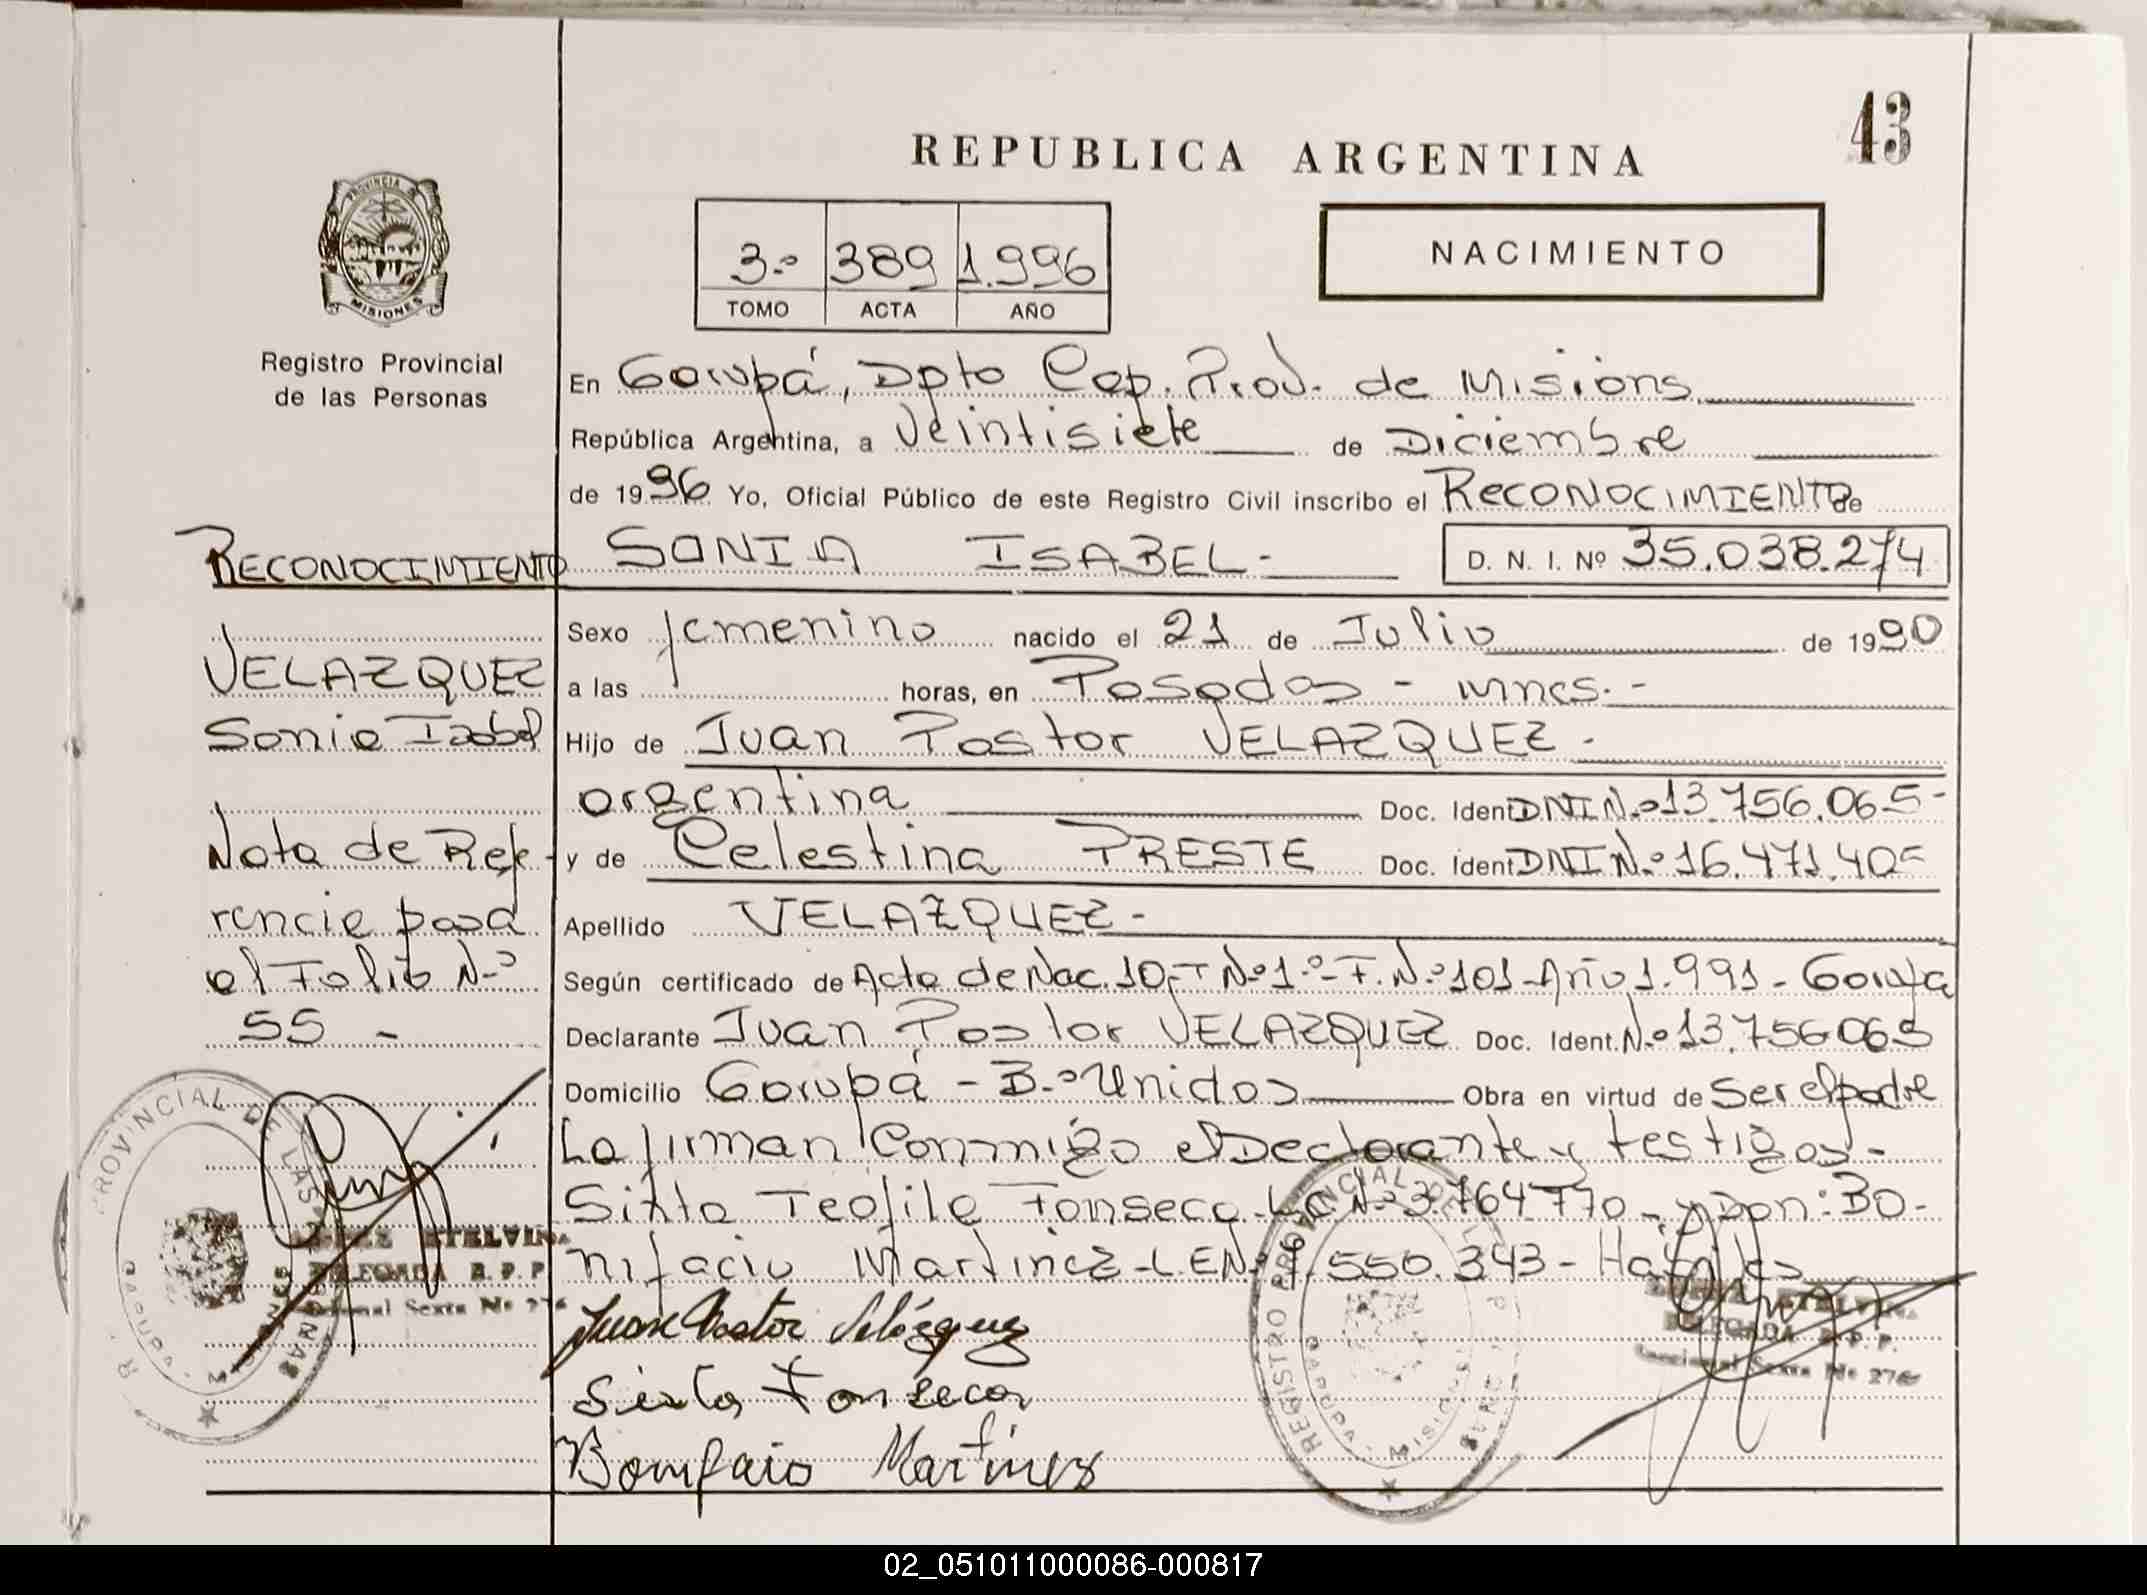 43
REPUBLICA ARGENTINA
NACIMIENTO
3.º 389 1.996
TOMO ACTA AÑO
PROVINCIA DE
MISIONES
Registro Provincial
de las Personas
En Garupá, Dpto Cap. Prov. de Misions
República Argentina, a Veintisiete de Diciembre
de 1996 Yo, Oficial Público de este Registro Civil inscribo el RECONOCIMIENTO de
SONIA ISABEL- D. N. I. Nº 35.038.274
Sexo femenino nacido el 21 de Julio de 1990
a las horas, en Posadas - mnes.-
Hijo de Juan Pastor VELAZQUEZ.
argentina Doc. Ident DNI N.º 13.756.065-
y de Celestina PRESTE Doc. Ident DNI N.º 16.471.40
Apellido VELAZQUEZ-
Según certificado de Acta de Nac. 10,-T Nº1.º-F.N.º101-Año 1.991- Garupa
Declarante Juan Pastor VELAZQUEZ Doc. Ident. N.º 13.756065
Domicilio Garupá - B.º Unidos Obra en virtud de Ser el padre
La firman Conmigo el Declarante y testigos-
Sixta Teofila Fonseca-LC N.º 3.764770-y Don: BO-
nifacio Martinez-L.E N.º 550.343-
Juan Pastor Velázquez
Sixta Fonseca
Bonifacio Martinez
RECONOCIMIENTO
VELAZQUEZ
Sonia Isabel
Nota de Refe-
rencia pasa
al Folio N.º
55 -
REGISTRO PROVINCIAL DE LAS PERSONAS
GARUPA - MISIONES
ETELVINA
DELEGADA R. P. P.
Seccional Sexta Nº 276
PROVINCIAL DE LAS
ETELVINA
DELEGADA R. P. P.
Seccional Sexta Nº 276
02_051011000086-000817